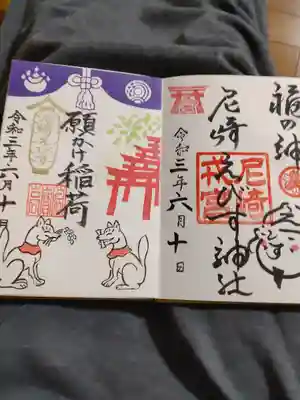 福の神
尼崎えびす神社
尼崎
戎宮
令和三年六月十日
願かけ稲荷
令和三年六月十日